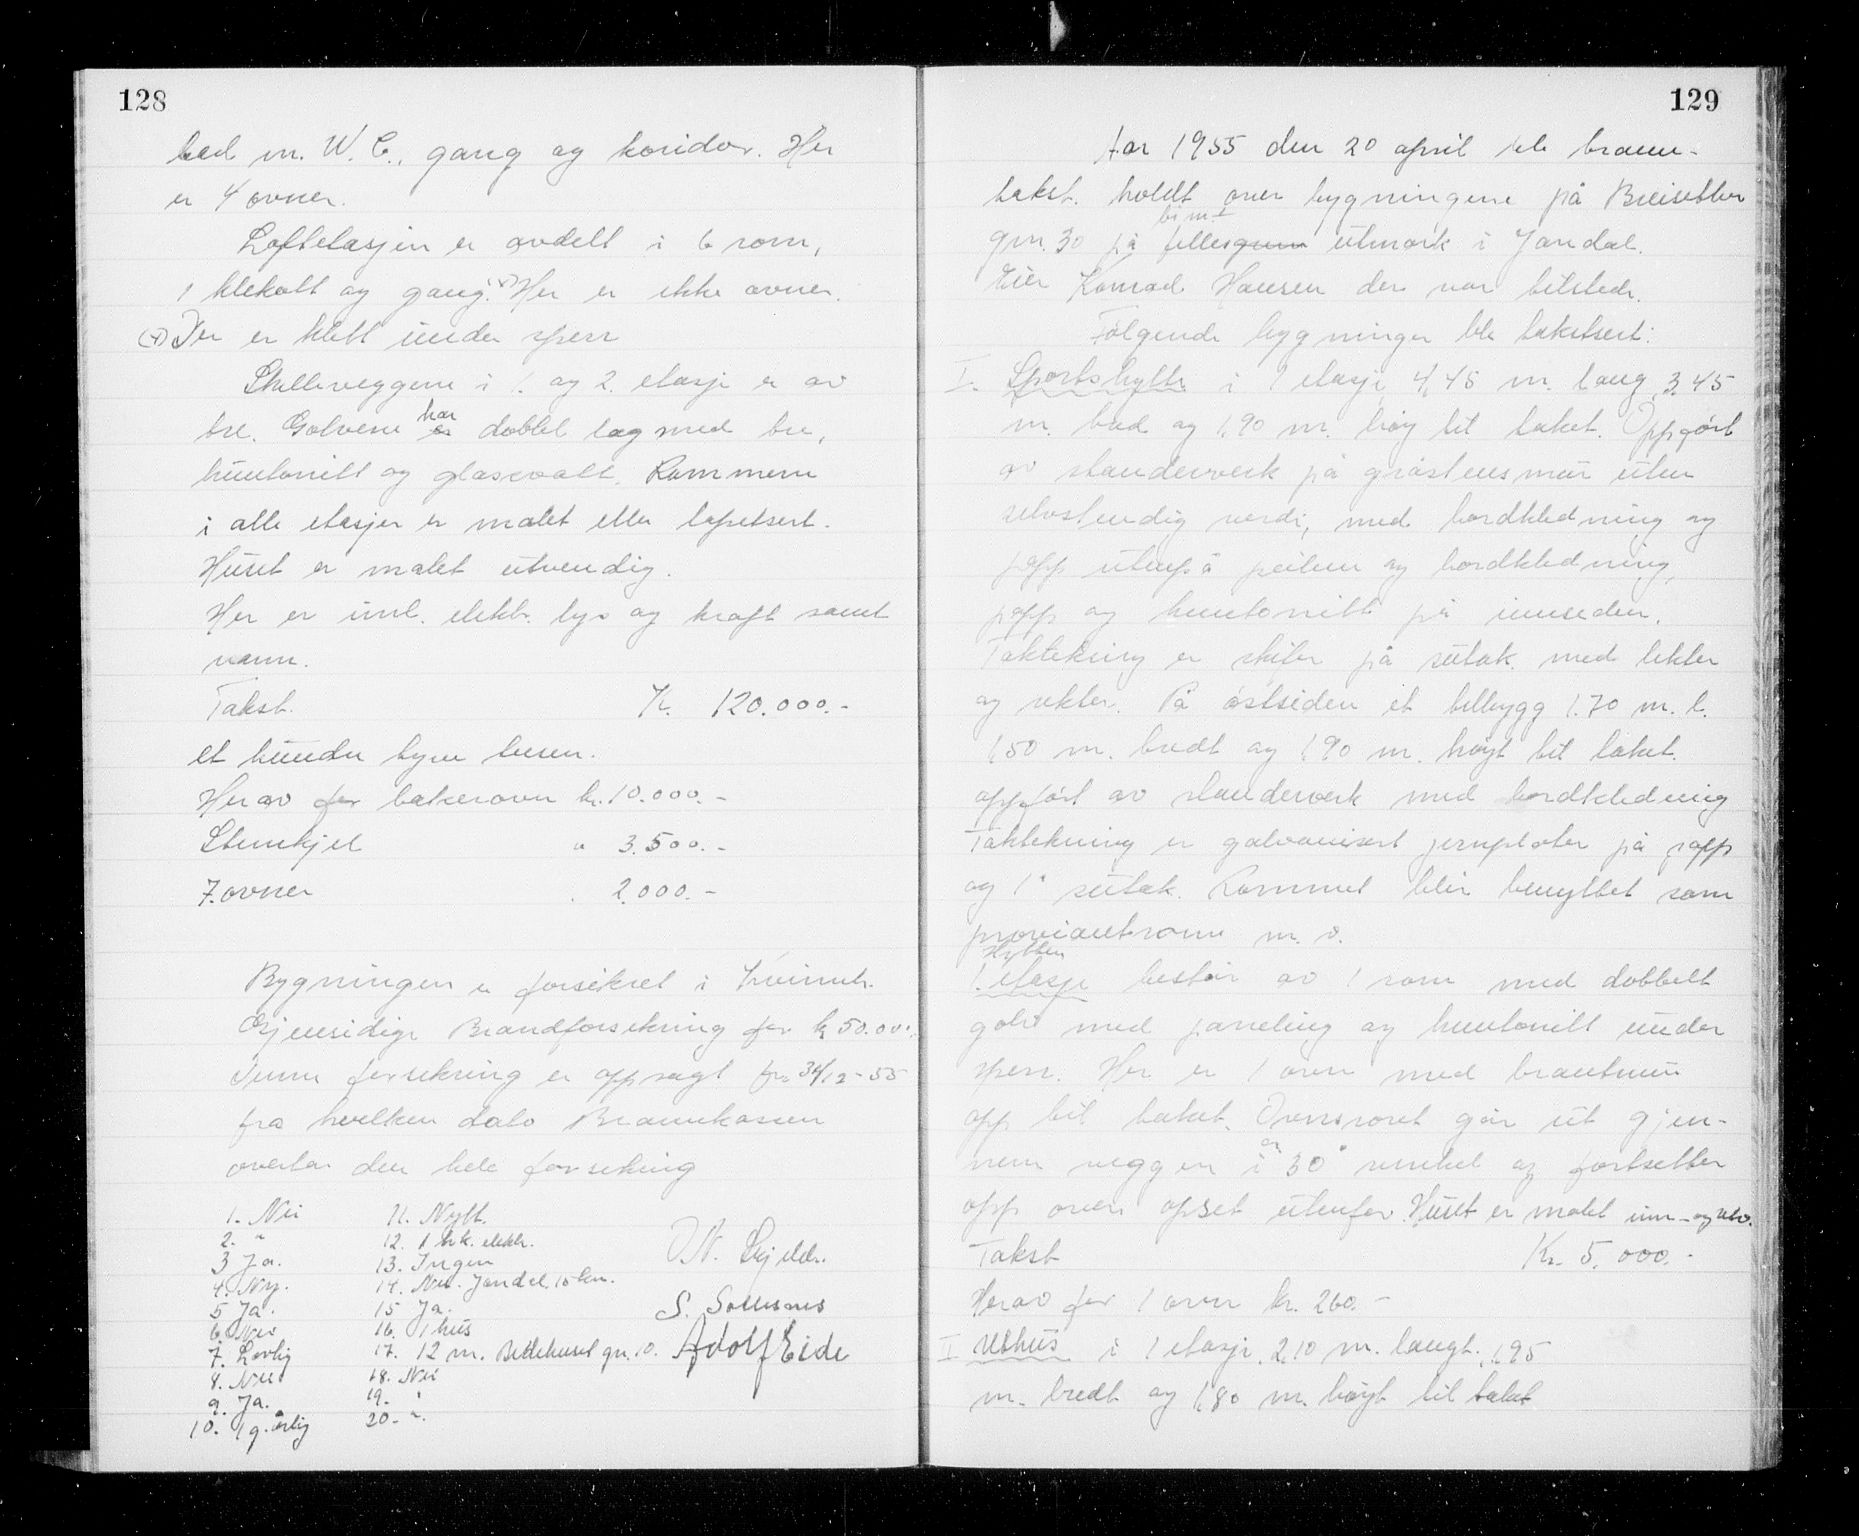 128
bad m. W. C., gang og koridor. Her
er 4 ovner.
Loftetasjen er avdelt i 6 rom,
1 klekott og gang. (+) Her er ikke ovner.
(+) Der er klett under sperr
Skilleveggene i 1. og 2. etasje er av
tre. Golvene har dobbel lag med tre,
huntonitt og glassvatt. Rommene
i alle etasjer er malet eller tapetsert.
Huset er malet utvendig.
Her er innl. elektr. lys og kraft samt
vann.
Takst. Kr. 120.000.-
et hundre tyve tusen.
Herav for bakerovn kr. 10.000.-
Stemkjel " 3.500.-
7. ovner " 2.000.-
Bygningen er forsikret i
Gjensidige Brandforsikring for kr 50.000.
Denne forsikring er oppsagt fra 31/12-55
fra hvilken dato Brannkassen
overtar den hele forsikring
1. Nei
2. "
3 Ja.
4. Ny.
5 Ja.
6. Nei
7. Lovlig
8. Nei
9. Ja.
10. 1 g. årlig
11. Nytt.
12. 1 stk. elektr.
13. Ingen
14. Nei. Jondal. 10 km.
15 Ja.
16. 1 hus
17. 12 m. Bedehuset gn. 10.
18. Nei
19. "
20. "
S. Solesnes
Adolf Eide
129
Aar 1955 den 20 april ble brann-
takst. holdt over bygningene på Breisetter
gnr. 30 på felles utmark i Jondal.
Eier Konrad Hansen der var tilstede.
Følgende bygninger ble takstsert:
I. Sportshytte i 1 etasje 4,45 m. lang, 3,45
m. bred og 1,90 m. høy til taket. Oppført
av standerverk på gråstensmur uten
selvstendig verdi, med bordkledning og
papp utenpå peilene og bordkledning,
papp og huntonitt på innsiden.
Taktekning er skifer på sutak med lekter
og rekter. På østsiden et tilbygg 1.70 m. l.
1,50 m. bredt og 1,90 m. høyt til taket.
oppført av standerverk med bordkledning
Taktekning er galvanisert jernplater på papp
og 1" sutak. Rommet blir benyttet som
proviantrom m. v.
Hytten
1. etasje består av 1 rom med dobbelt
golv med paneling og huntonitt under
sperr. Her er 1 ovn med brantmur
opp til taket. Ovnsroret går ut gjen-
nem veggen i en 30° vinkel og fortsetter
opp over opset utenfor. Huset er malet inn- og utv.
Takst Kr. 5.000.-
Herav for 1 ovn kr. 260.-
II Uthus i 1 etasje, 2,10 m. langt, 1,95
m. bredt og 1,80 m. høyt til taket